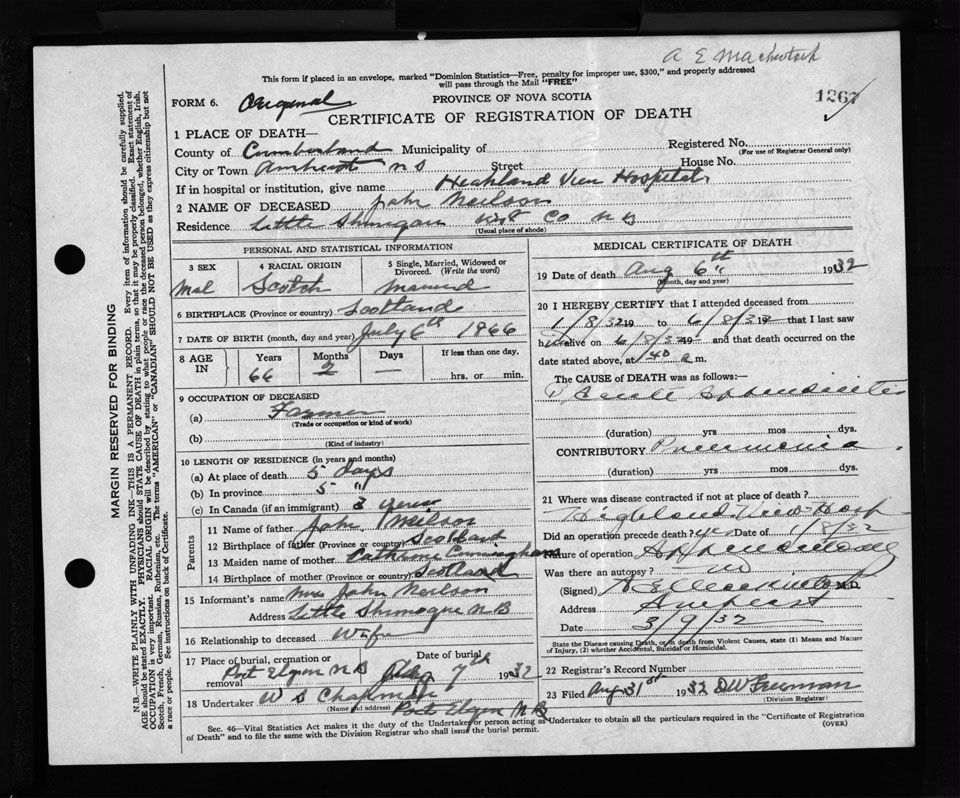 A E Mackintosh
This form if placed in an envelope, marked "Dominion Statistics—Free, penalty for improper use, $300," and properly addressed
will pass through the Mail "FREE"
FORM 6. Original PROVINCE OF NOVA SCOTIA 1267
CERTIFICATE OF REGISTRATION OF DEATH
1 PLACE OF DEATH—
County of Cumberland Municipality of Registered No.
(For use of Registrar General only)
City or Town Amherst N S Street House No.
If in hospital or institution, give name Highland View Hospital
2 NAME OF DECEASED John Neilson
Residence Little Shimogue West Co N B
(Usual place of abode)
PERSONAL AND STATISTICAL INFORMATION
3 SEX 4 RACIAL ORIGIN 5 Single, Married, Widowed or
Divorced. (Write the word)
Mal Scotch Married
6 BIRTHPLACE (Province or country) Scotland
7 DATE OF BIRTH (month, day and year) July 6th 1866
8 AGE IN Years Months Days If less than one day,
66 2 — hrs. or min.
9 OCCUPATION OF DECEASED
(a) Farmer
(Trade or occupation or kind of work)
(b)
(Kind of industry)
10 LENGTH OF RESIDENCE (in years and months)
(a) At place of death 5 days
(b) In province 5 "
(c) In Canada (if an immigrant) 3 years
Parents
11 Name of father John Neilson
12 Birthplace of father (Province or country) Scotland
13 Maiden name of mother Catherine Cunningham
14 Birthplace of mother (Province or country) Scotland
15 Informant's name Mrs John Neilson
Address Little Shimogue N B
16 Relationship to deceased Wife
17 Place of burial, cremation or removal Port Elgin N B Date of burial Aug 7th 1932
18 Undertaker W S Chapman
(Name and address) Port Elgin N B
MEDICAL CERTIFICATE OF DEATH
19 Date of death Aug 6th 1932
(Month, day and year)
20 I HEREBY CERTIFY that I attended deceased from
1/8/32 19 to 6/8/32 19 that I last saw
h alive on 6/8/32 19 and that death occurred on the
date stated above, at 140 a m.
The CAUSE of DEATH was as follows:—
Acute Appendicitis
(duration) yrs mos dys.
CONTRIBUTORY Pneumonia
(duration) yrs mos dys.
21 Where was disease contracted if not at place of death?
Highland View Hosp
Did an operation precede death? yes Date of 1/8/32
Nature of operation Appendectomy
Was there an autopsy? no
(Signed) A E Mackintosh M.D.
Address Amherst
Date 3/9/32
State the Disease causing Death, or in death from Violent Causes, state (1) Means and Nature
of Injury, (2) whether Accidental, Suicidal or Homicidal.
22 Registrar's Record Number
23 Filed Aug 31st 1932 DW Freeman
(Division Registrar)
Sec. 46—Vital Statistics Act makes it the duty of the Undertaker or person acting as Undertaker to obtain all the particulars required in the "Certificate of Registration
of Death" and to file the same with the Division Registrar who shall issue the burial permit. (OVER)
MARGIN RESERVED FOR BINDING
N.B.—WRITE PLAINLY WITH UNFADING INK—THIS IS A PERMANENT RECORD. Every item of information should be carefully supplied.
AGE should be stated EXACTLY. PHYSICIANS should STATE CAUSE OF DEATH in plain terms, so that it may be properly classified. Exact statement of
OCCUPATION is very important. RACIAL ORIGIN will be described by stating to what people or race the deceased person belonged, whether English, Irish,
Scotch, French, German, Russian, Ruthenian, etc. The terms "AMERICAN" or "CANADIAN" SHOULD NOT BE USED as they express citizenship but not
a race or people. See instructions on back of Certificate.